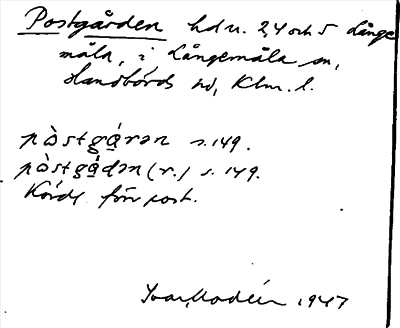 Postgården hd n. 24 och 5 Långe
måla, i Långemåla sn,
Handbörds hd, Klm. l.
pòstgá̱rən s. 149.
pòstgá̱dən (r.) s. 149.
Körde för post.
Ivar Modéer 1947